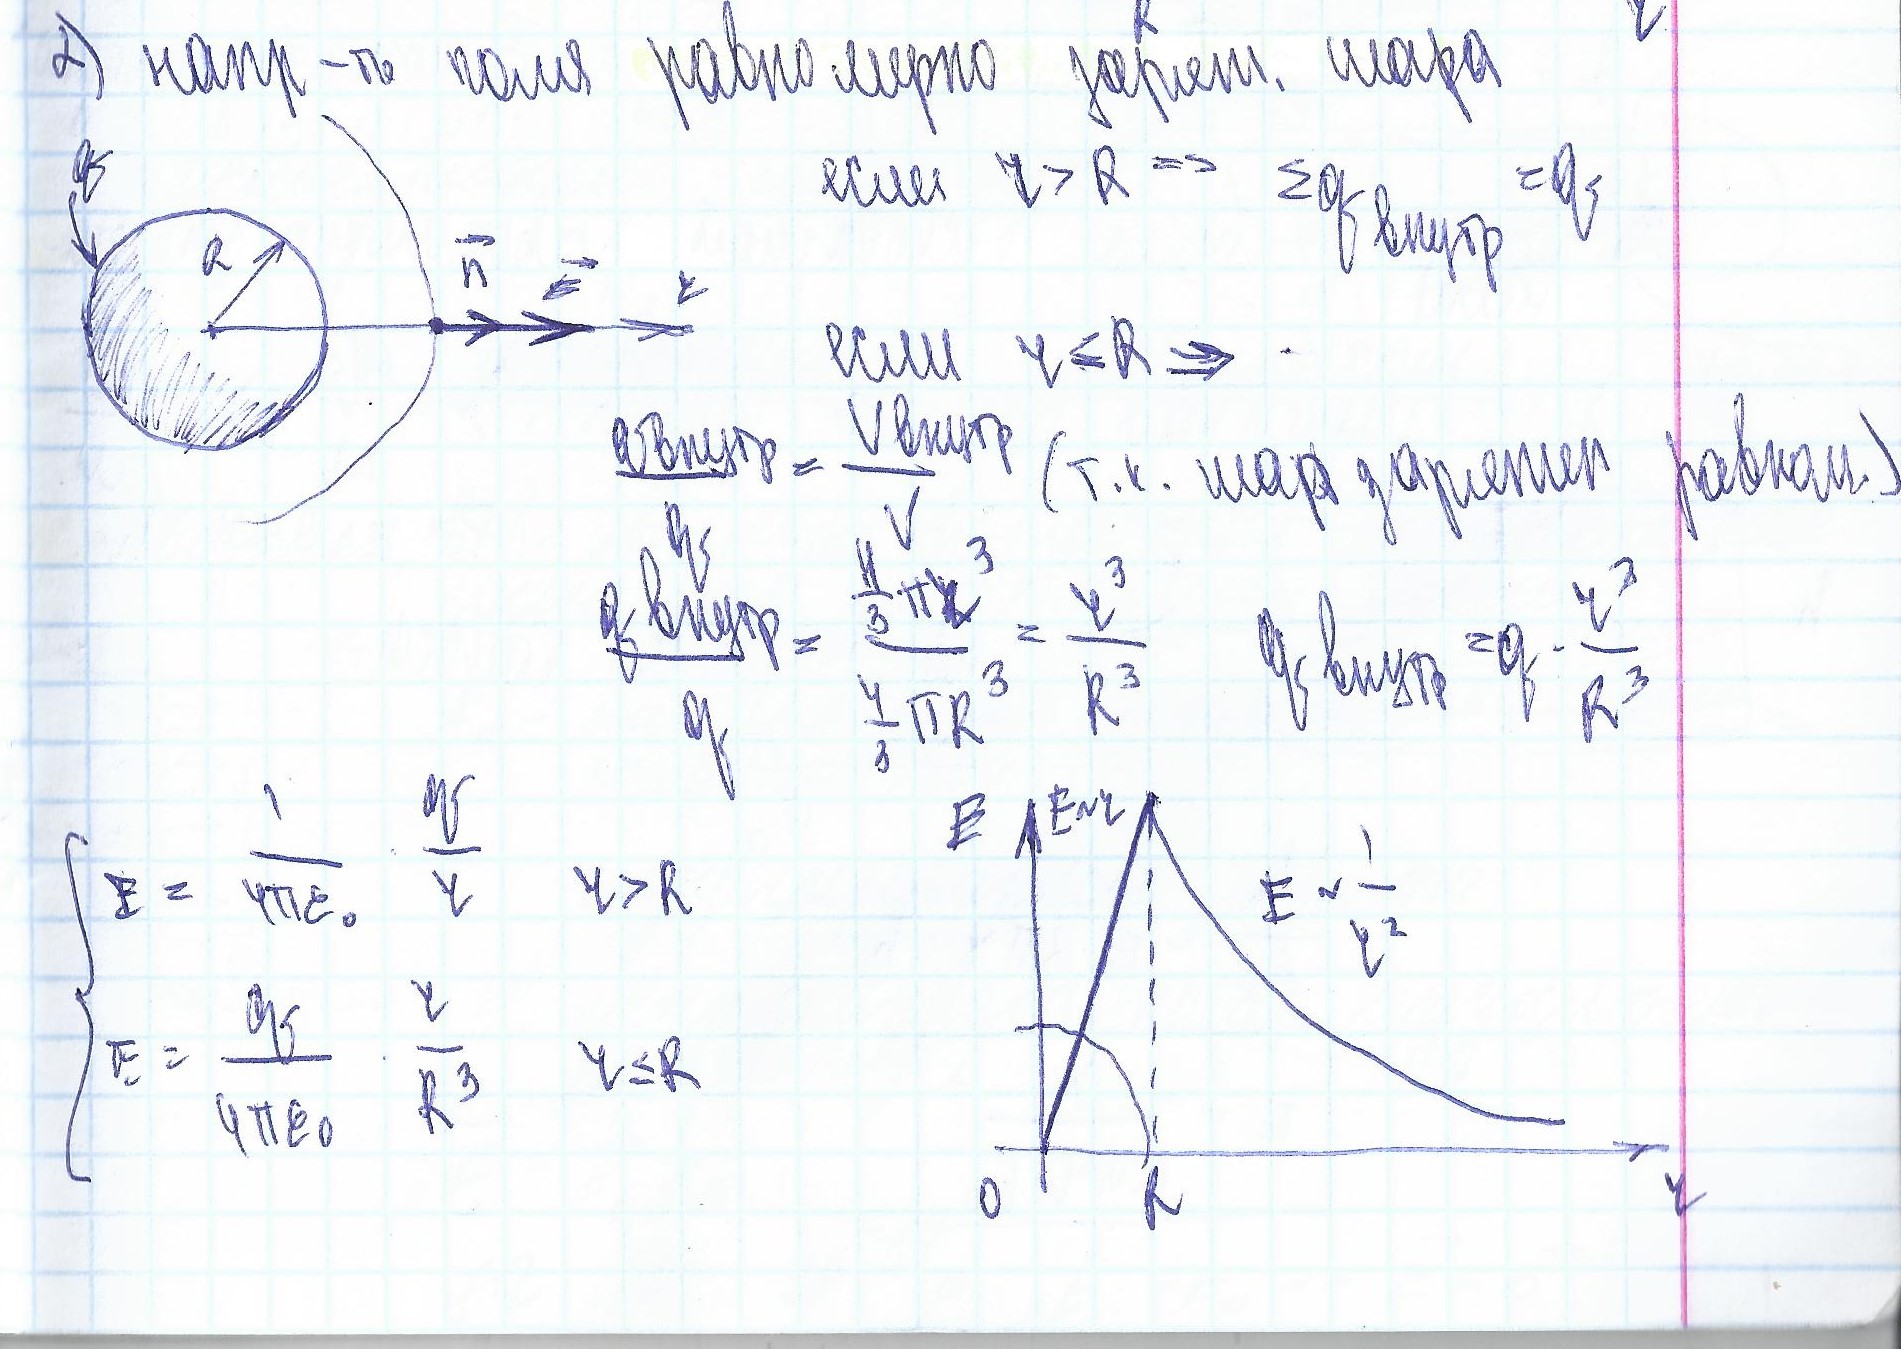 R
r
2) напр-ть поля равномерно заряжен. шара
если r > R => Σq внутр = q
q
R
n E r
если r ≤ R =>
q внутр / q = V внутр / V (т.к. шар заряжен равном.)
q внутр / q = 4/3 · π r³ / 4/3 π R³ = r³ / R³ q внутр = q · r³ / R³
E = 1 / 4πε₀ · q / r r > R
E = q / 4πε₀ · r / R³ r ≤ R
E E~r
E ~ 1 / r²
0 R r